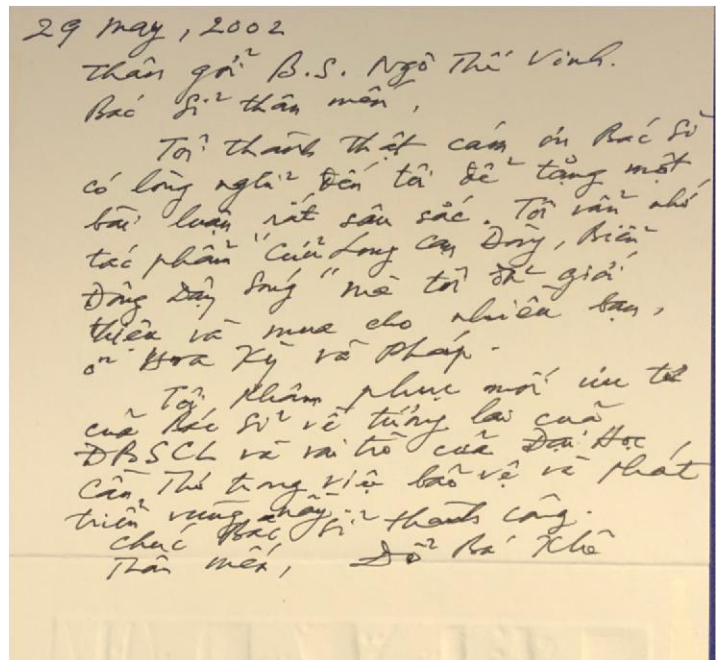 29 May, 2002
Thân gởi B.S. Ngô Thế Vinh.
Bác Sĩ thân mến,
Tôi thành thật cám ơn Bác Sĩ
có lòng nghĩ đến tôi để tặng một
bài luận rất sâu sắc. Tôi vẫn nhớ
tác phẩm "Cửu Long Cạn Dòng, Biển
Đông Dậy Sóng" mà tôi đã giới
thiệu và mua cho nhiều bạn,
ở Hoa Kỳ và Pháp.
Tôi khâm phục mối ưu tư
của Bác Sĩ về tương lai của
ĐBSCL và vai trò của Đại Học
Cần Thơ trong việc bảo vệ và phát
triển vùng nầy.
Chúc Bác Sĩ thành công.
Thân mến, Đỗ Bá Khê